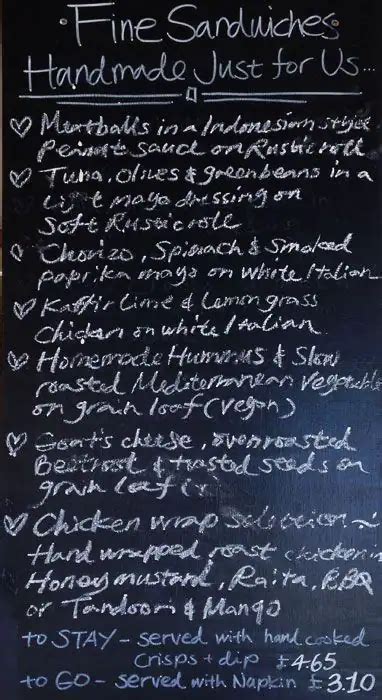 ·Fine Sandwiches·
Handmade Just for Us...
Meatballs in a Indonesian style
Peanut Sauce on Rustic roll
Tuna, Olives & greenbeans in a
Light mayo dressing on
Soft Rustic roll
Chorizo, Spinach & Smoked
paprika mayo on white Italian
Kaffir Lime & Lemongrass
Chicken on white Italian
Homemade Hummus & Slow
roasted Mediterranean Vegetable
on grain loaf (Vegan)
Goat's cheese, ovenroasted
Beetroot & toasted seeds on
grain loaf
Chicken wrap selection ~
Hand wrapped, roast chicken in
Honey mustard, Raita, BBQ
or Tandoori & Mango
to STAY - served with hand cooked
Crisps + dip £4.65
to GO - served with Napkin £3.10